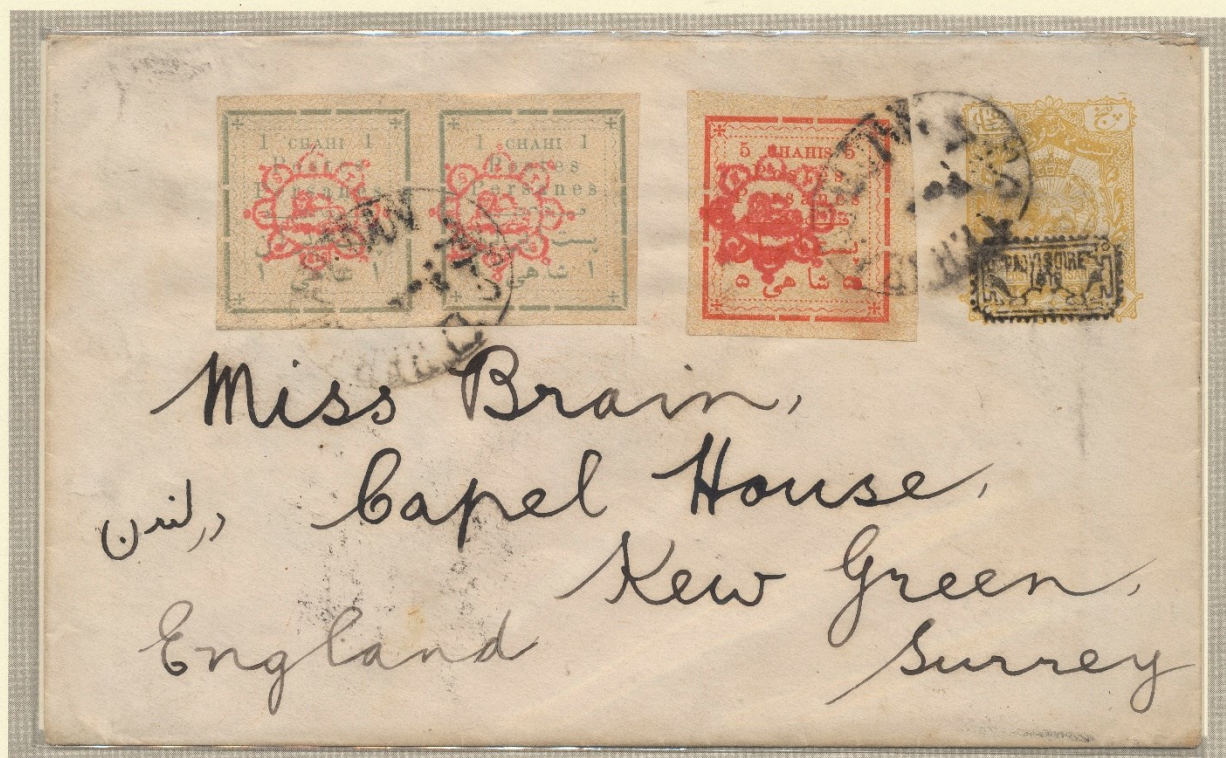 1 CHAHI 1
Postes
Persanes
۱ شاهی ۱
1 CHAHI 1
Postes
Persanes
۱ شاهی ۱
5 CHAHIS 5
Postes
Persanes
۵ شاهی ۵
PROVISOIRE
Miss Brain,
Capel House,
در لندن
Kew Green,
England
Surrey